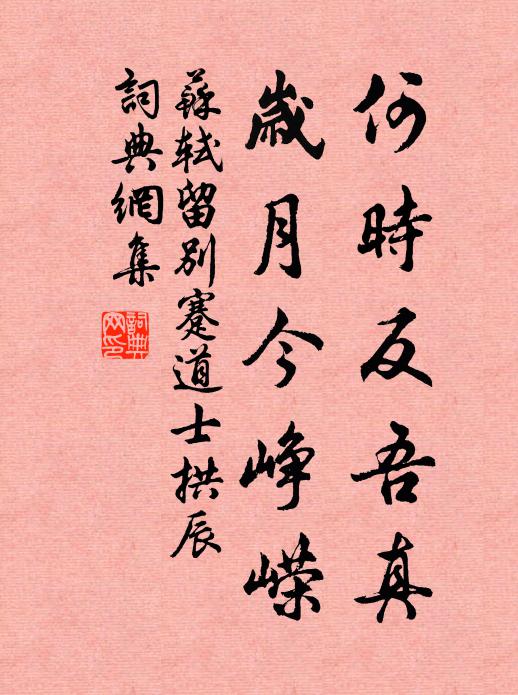 何時反吾真
歲月今崢嶸
蘇軾留別蹇道士拱辰
詞典網集
詞典網印